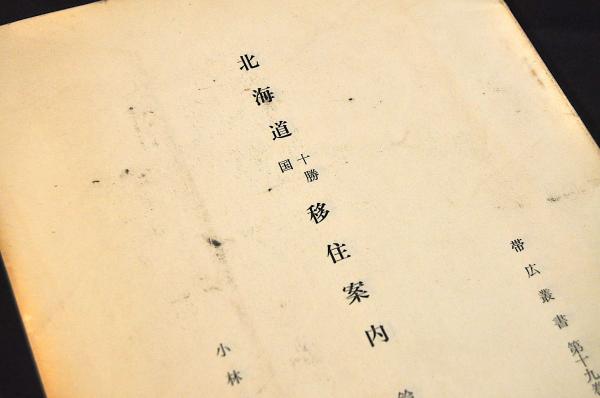 帯広叢書第十九巻
北海道十勝国移住案内
小林